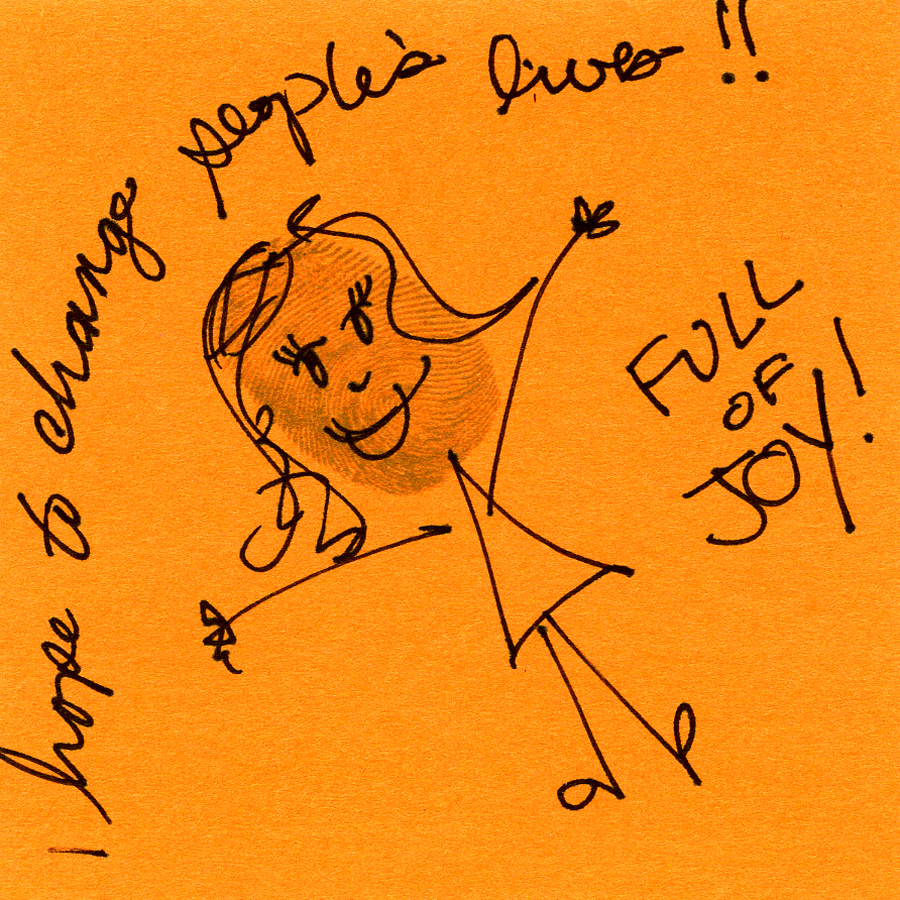 I hope to change people's lives!!
FULL
OF
JOY!